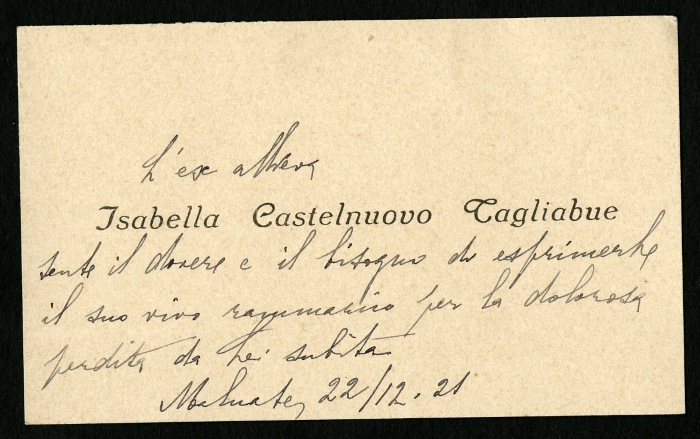 L'ex allieva
Isabella Castelnuovo Tagliabue
sente il dovere e il bisogno di esprimerle
il suo vivo rammarico per la dolorosa
perdita da Lei subita
Malnate, 22/12.21